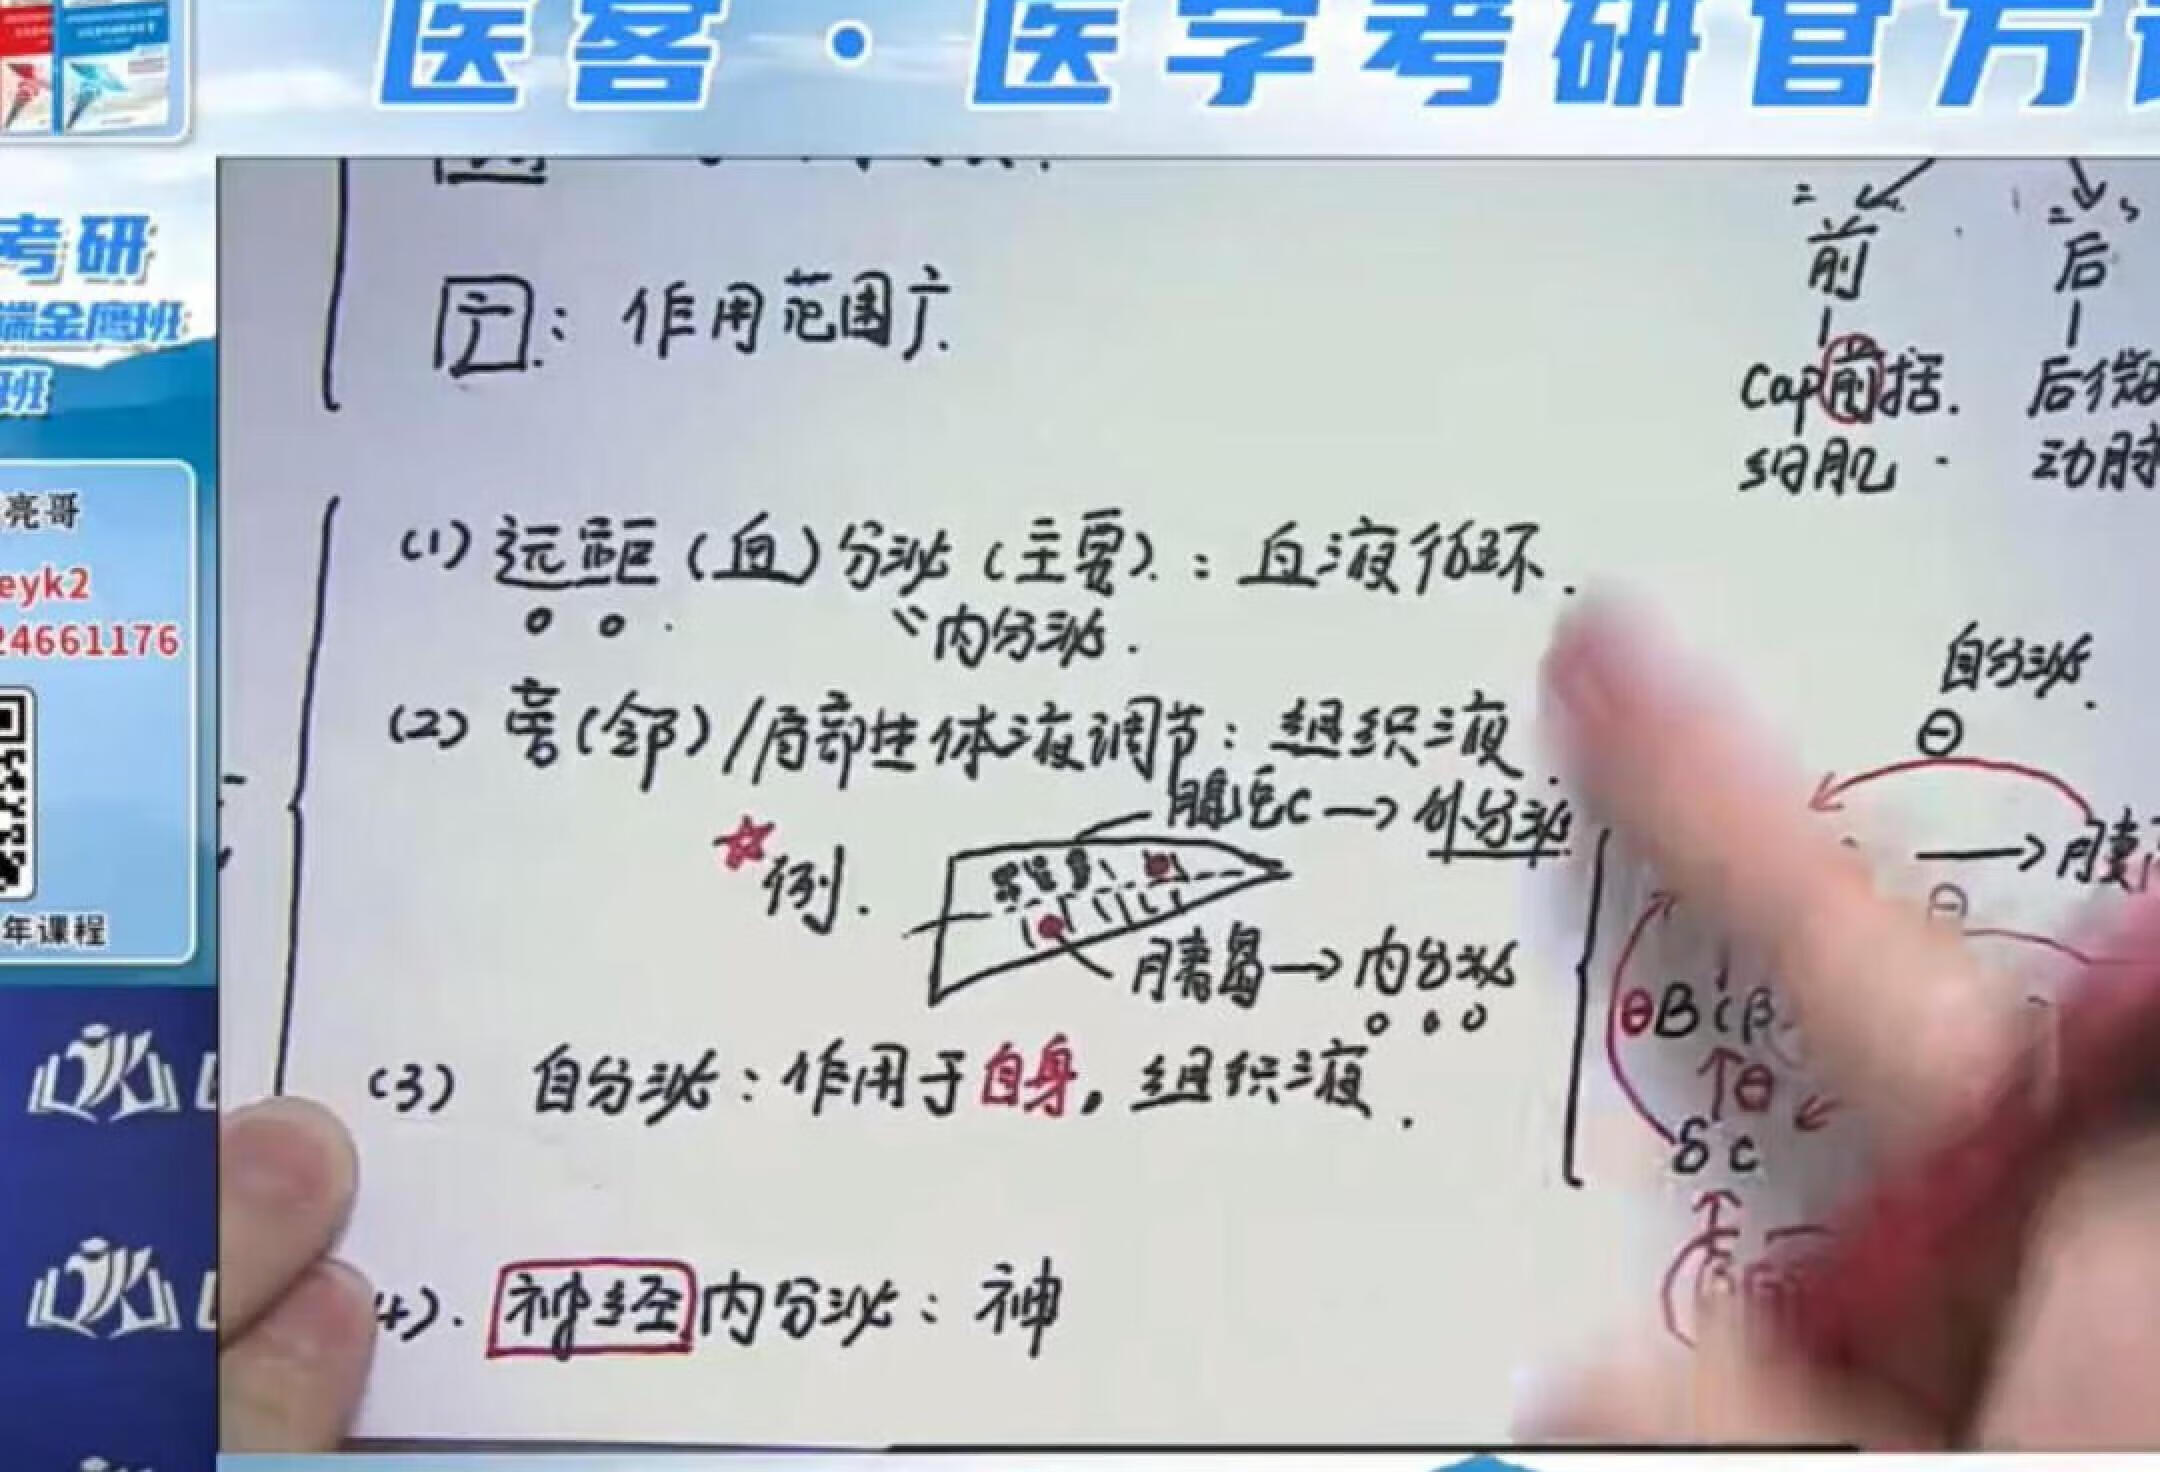 医客·医学考研官方
考研
端金鹰班
班
亮哥
eyk2
24661176
年课程
广：作用范围广.
前 后
Cap前括.
细肌.
后微
动脉
(1) 远距(血)分泌(主要).：血液循环.
"内分泌.
(2) 旁(邻)/局部性体液调节：组织液.
腺泡C→外分泌
☆例.
胰岛→内分泌
(3) 自分泌：作用于自身，组织液.
4). 神经内分泌：神
自分泌.
⊖
→胰
⊖
⊖B (β
↑⊖
δ C